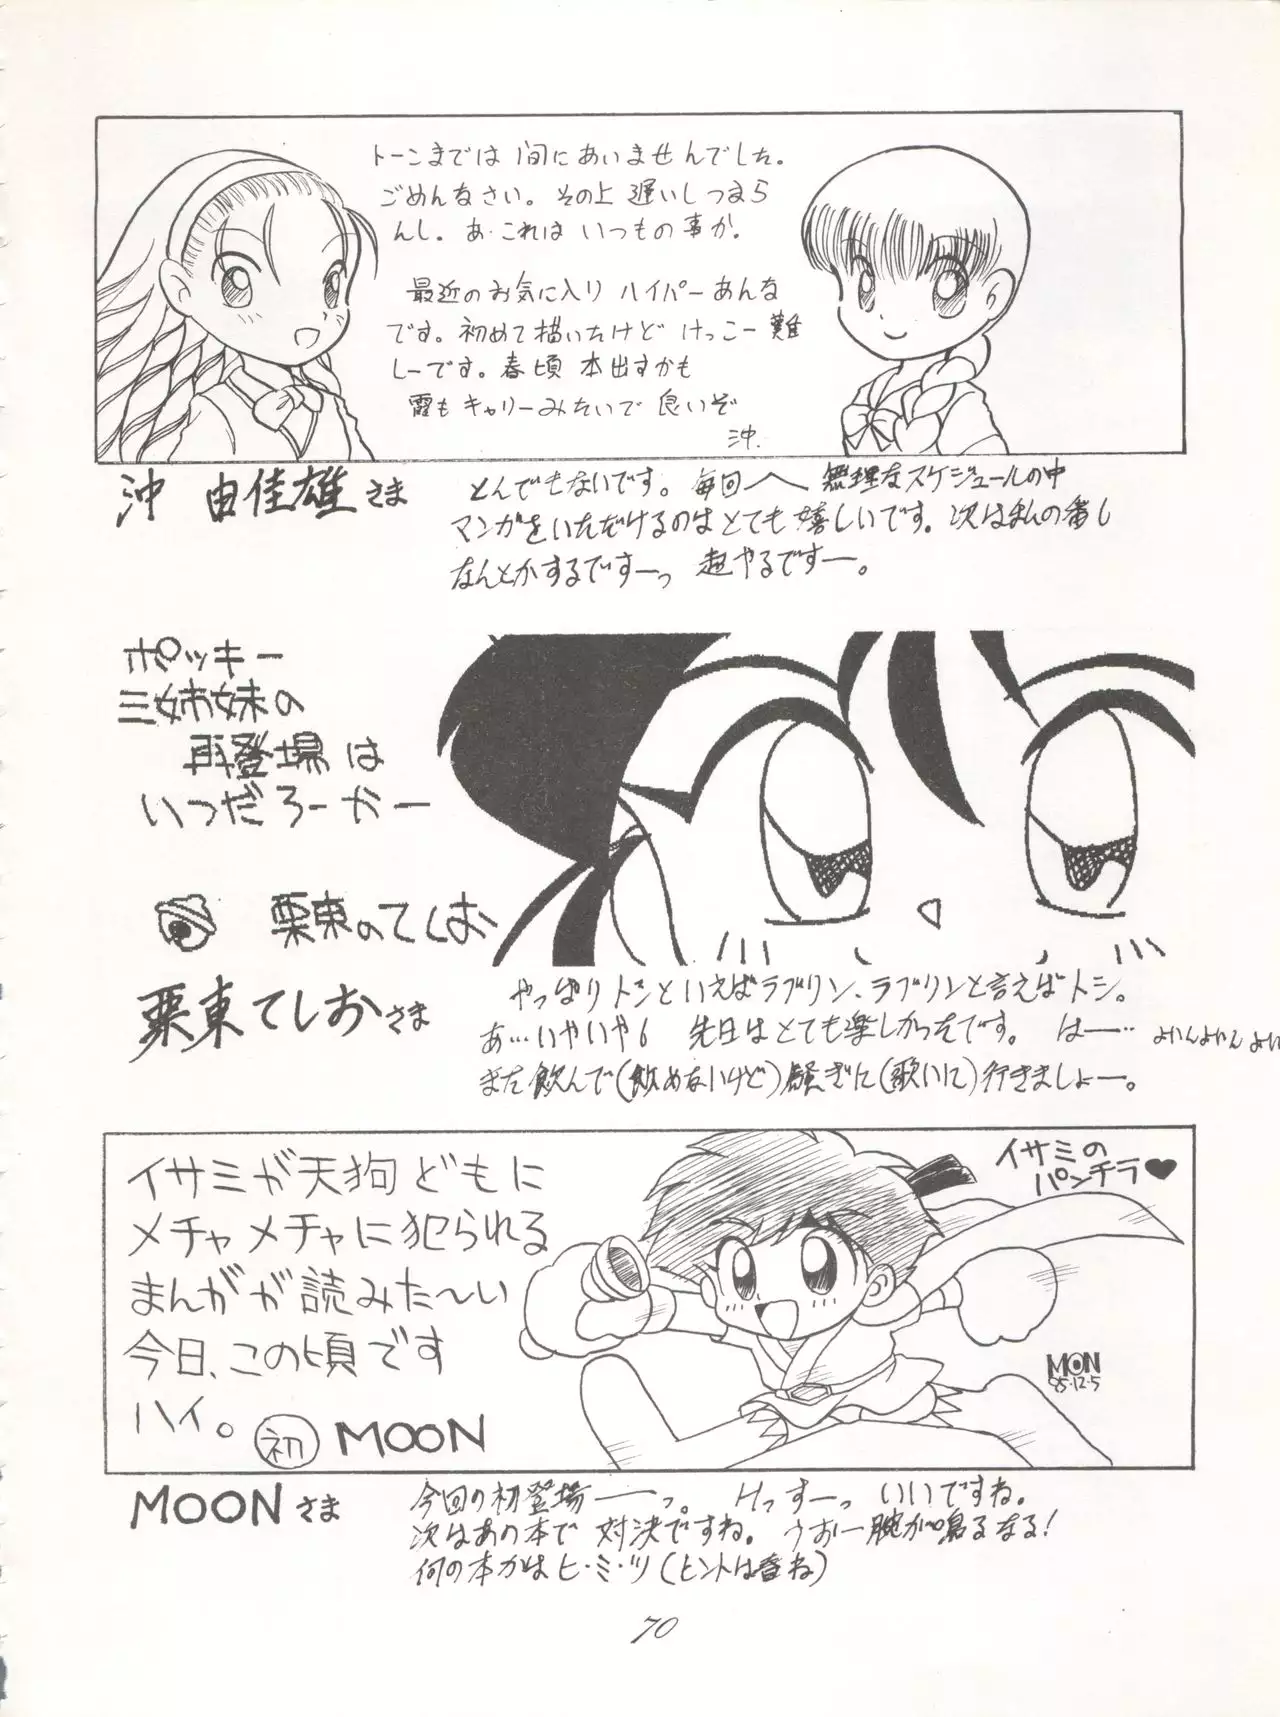 トーンまでは間にあいませんでした。
ごめんなさい。その上 遅いしつまら
んし。あ・これは いつもの事か。
最近のお気に入り ハイパーあんな
です。初めて描いたけど けっこー難
しーです。春頃 本出すかも
霞も キャリーみたいで 良いぞ
沖.
沖 由佳雄さま
とんでもないです。毎回 無理なスケジュールの中
マンガをいただけるのはとても嬉しいです。次はまんの番し
なんとかするですーっ 超やるですー。
ポッキー
三姉妹の
再登場は
いつだろーかー
栗東のてしお
栗東てしおさま
やっぱりトシといえばラブリン、ラブリンと言えばトシ。
あ…いやいや 先日はとても楽しかったです。 はー… よかんよかん
また飲んで(飲めないけど)騒ぎに(歌いに)行きましょー。
イサミが天狗どもに
メチャメチャに犯られる
まんがが読みた〜い
今日、この頃です
ハイ。 初 MOON
イサミの
パンチラ♥
MOON
95・12・5
MOONさま
今回の初登場ーっ。 Hっすーっ いいですね。
次はあの本で 対決ですね。うおー腕が鳴るなる!
何の本かはヒ・ミ・ツ(ヒントは春ね)
70